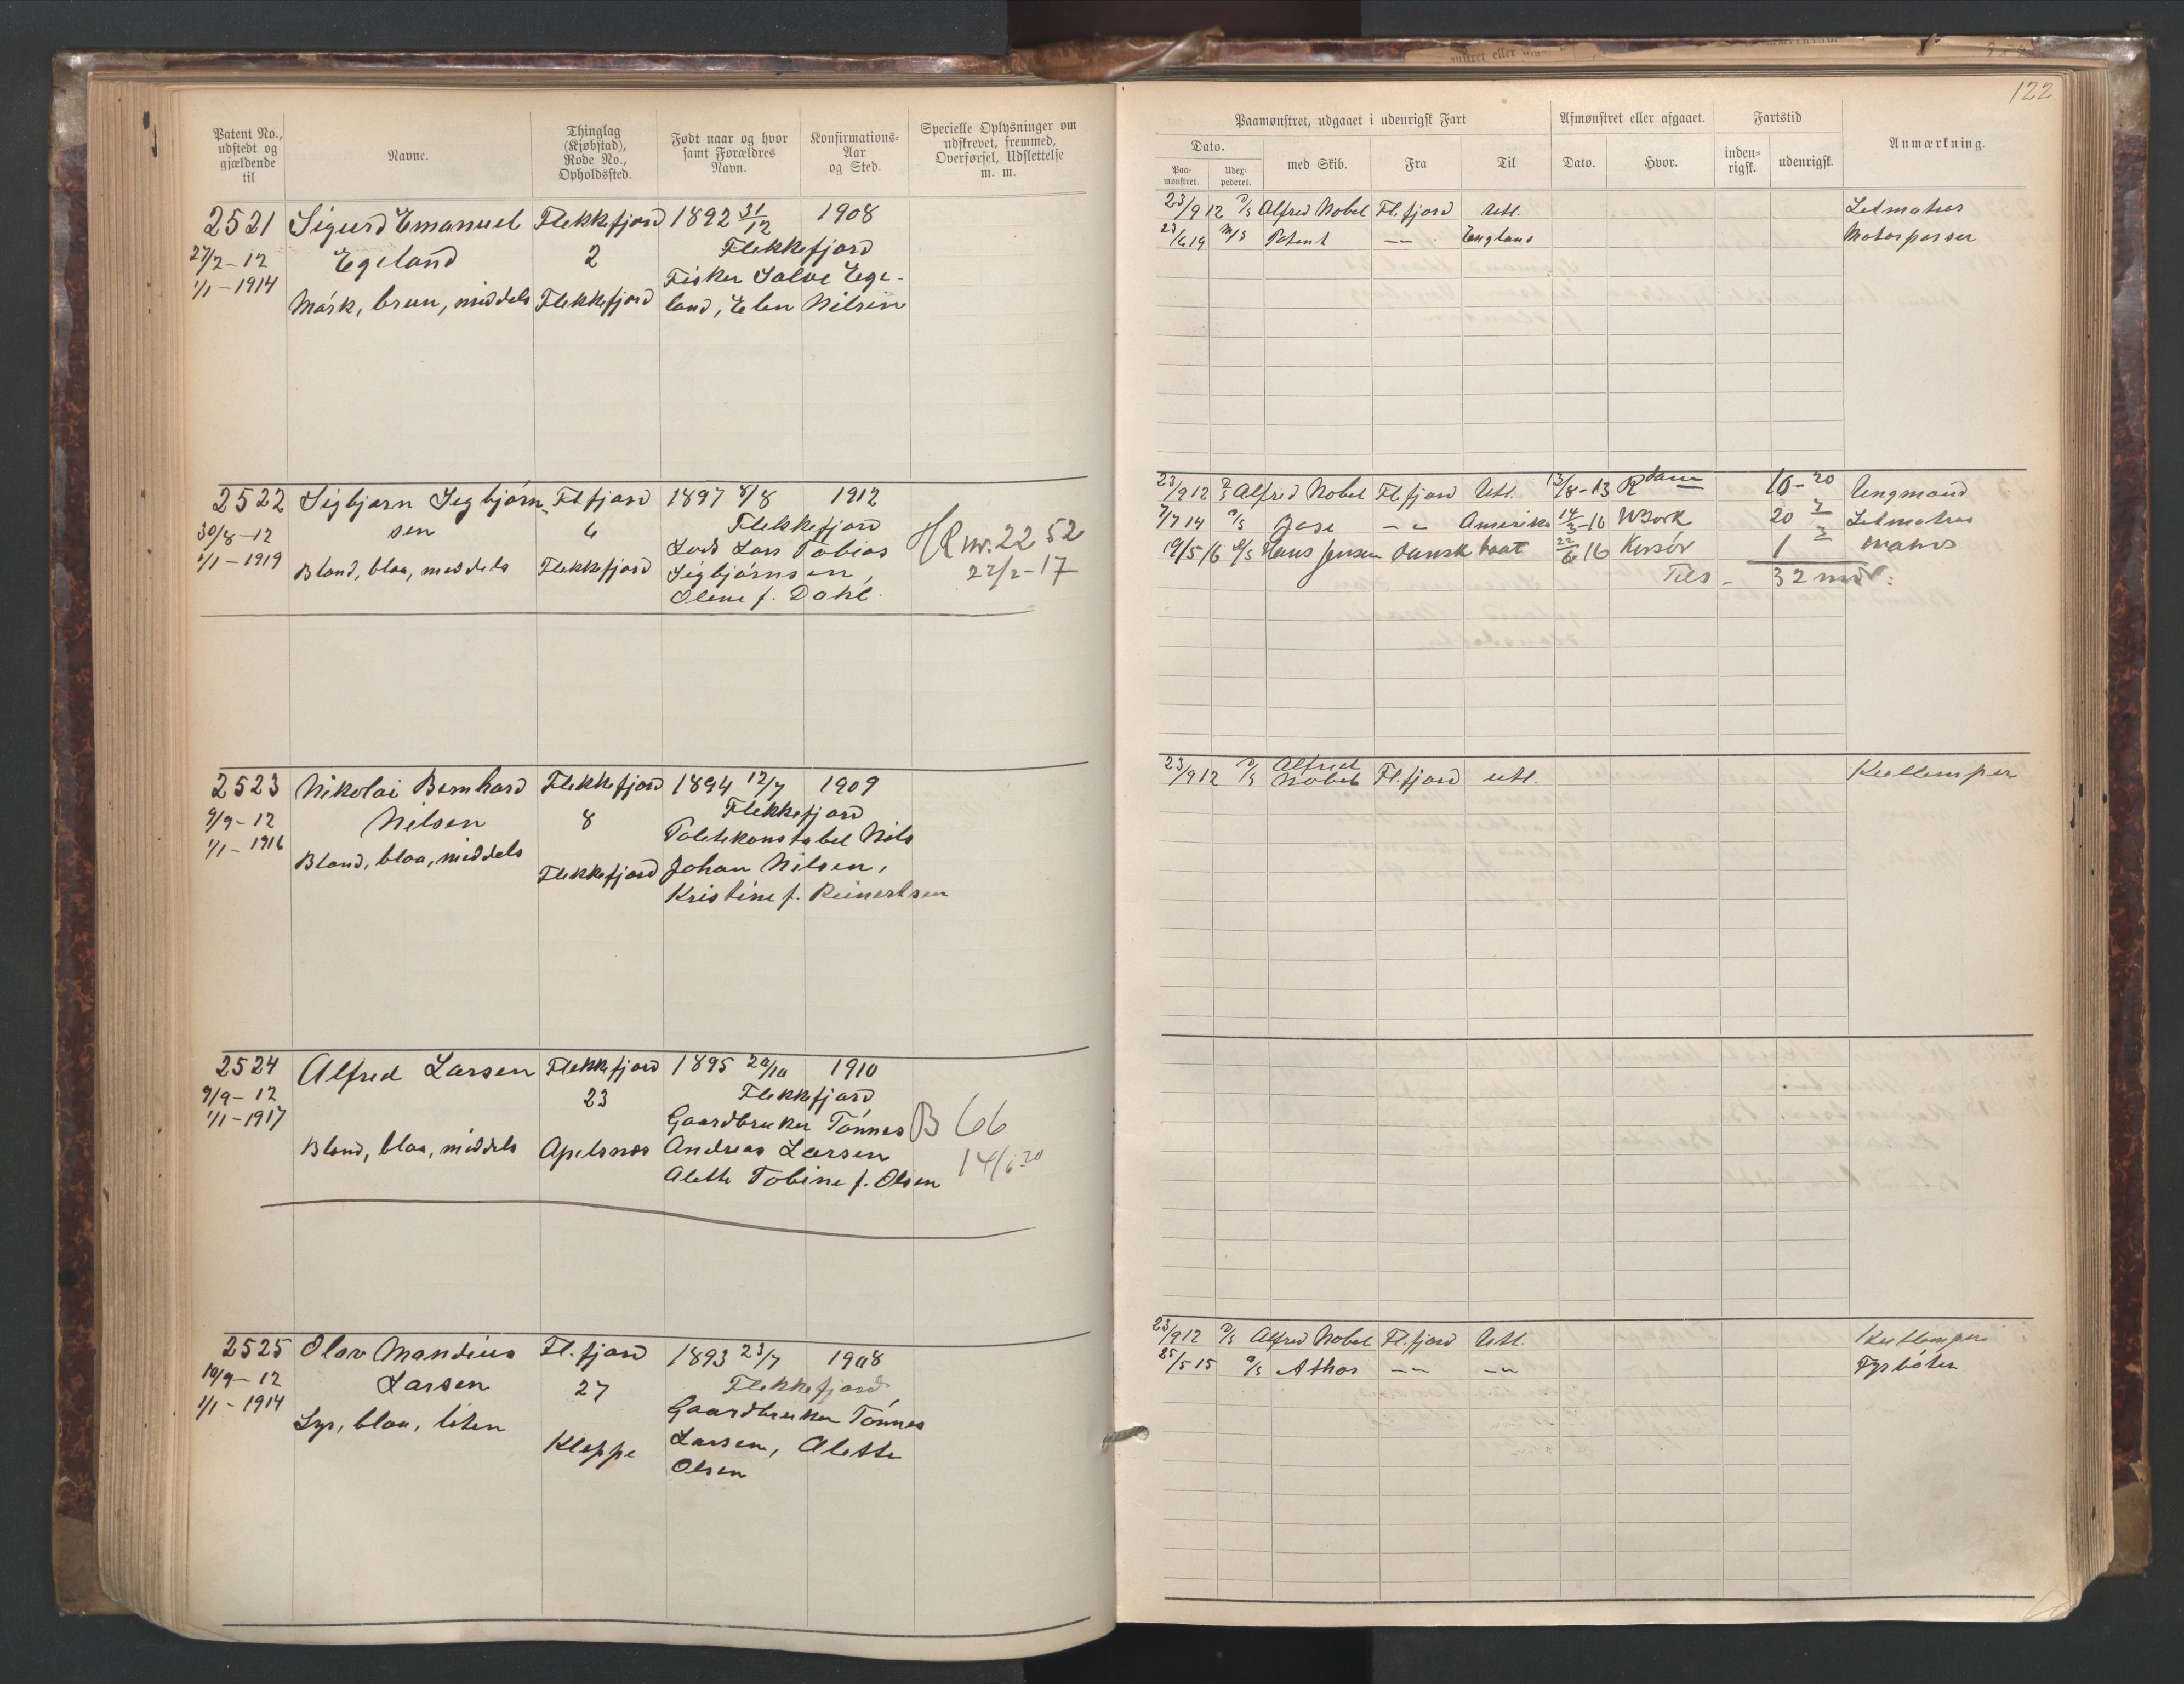 122
Patent No., udstedt og gjældende til
Navne.
Thinglag (Kjøbstad), Rode No., Opholdssted.
Født naar og hvor samt Forældres Navn.
Konfirmations-Aar og Sted.
Specielle Oplysninger om udskrevet, fremmed, Overførsel, Udslettelse m. m.
Paamønstret, udgaaet i udenrigsk Fart
Afmønstret eller afgaaet.
Fartstid
Anmærkning.
Dato.
Paa-mønstret.
Udex-pederet.
med Skib.
Fra
Til
Dato.
Hvor.
inden-rigsk.
udenrigsk.
2521 Sigurd Emanuel Flekkefjord 1892 31/12 1908
27/7-12 Egeland 2 Flekkefjord
1/1-1914 Mørk, brun, middels Flekkefjord Fisker Salve Ege-
land, Elen Nilsen
23/9 12 D/S Alfred Nobel Fl.fjord Utl. Letmatros
23/6 19 M/S Patent -"- England Motorpasser
2522 Sigbjørn Sigbjørn- Fl.fjord 1897 8/8 1912
30/8-12 sen 6 Flekkefjord
1/1-1919 Blond, blaa, middels Flekkefjord Lods Lars Tobias
Sigbjørnsen,
Olene f. Dahl
HR nr. 2252
22/2-17
23/9 12 D/S Alfred Nobel Fl.fjord Utl. 13/8-13 Rdam 10-20 Ungmand
7/7 14 D/S Base -"- Amerika 14/3-16 NYork 20 7 Letmatros
19/5 16 D/S Hans Jensen dansk baat 22/6 16 Korsør 1 3 Matros
Tils - 32 mdr.
2523 Nikolai Bernhard Flekkefjord 1894 12/7 1909
9/9-12 Nilsen 8 Flekkefjord
1/1-1916 Blond, blaa, middels Flekkefjord Politikonstabel Nils
Johan Nilsen,
Kristine f. Reinertsen
23/9 12 D/S Alfred Nobel Fl.fjord utl. Kullemper
2524 Alfred Larsen Flekkefjord 1895 20/10 1910
9/9-12 23 Flekkefjord
1/1-1917 Gaardbruker Tønnes
Blond, blaa, middels Apelsnes Andreas Larsen
Alette Tobine f. Olsen
B 66
14/6 20
2525 Olav Mandius Fl.fjord 1893 23/7 1908
10/9-12 Larsen 27 Flekkefjord
1/1-1914 Lys, blaa, liten Kleppe Gaardbruker Tønnes
Larsen, Alette
Olsen
23/9 12 D/S Alfred Nobel Fl.fjord Utl. Kullemper
25/5 15 D/S Athos -"- -"- Fyrbøter